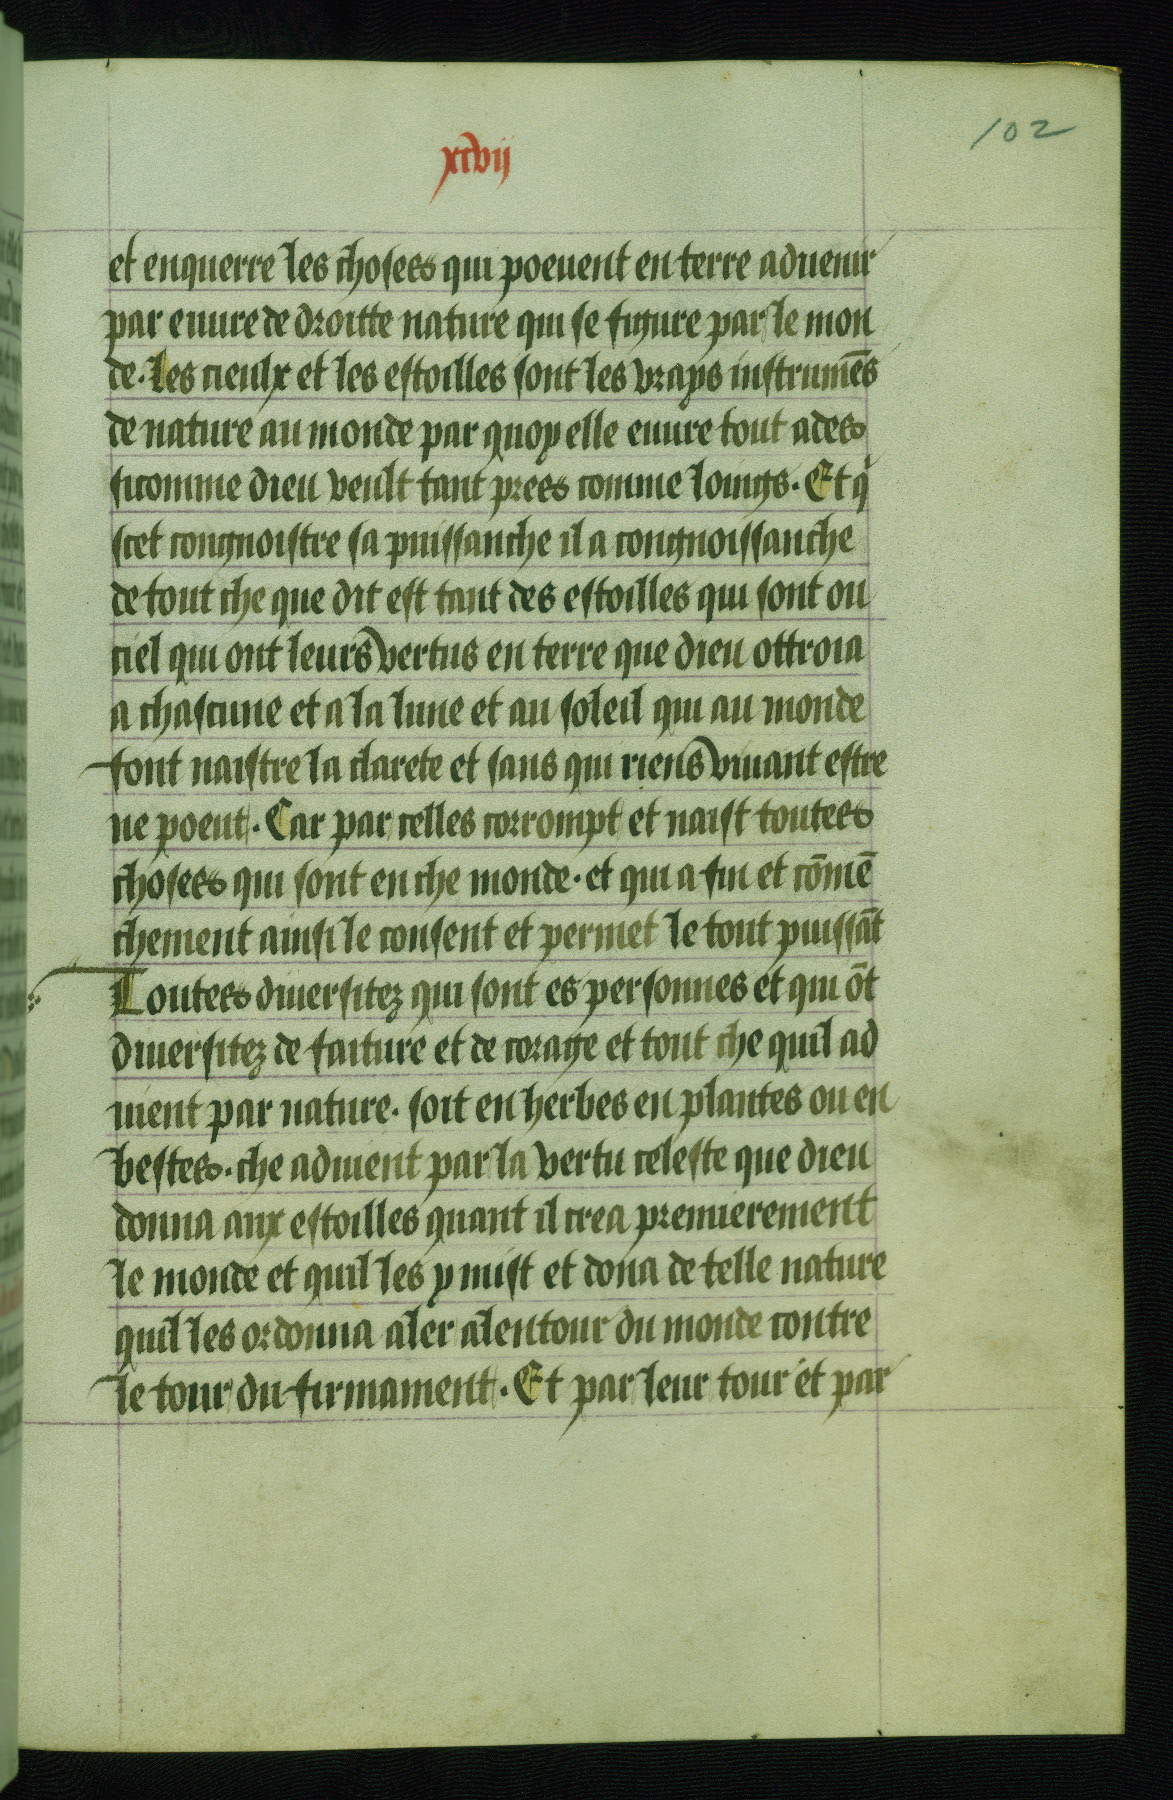 102
xcvij
et enquerre les choses qui poeuent en terre aduenir
par euure de droitte nature qui se figure par le mon
de. Les cieulx et les estoilles sont les vrays instrumēs
de nature au monde par quoy elle euure tout ades
sicomme dieu veult tant prees comme loings. Et q̇
scet congnoistre sa puissanche il a congnoissanche
de tout che que dit est tant des estoilles qui sont ou
ciel qui ont leurs vertus en terre que dieu ottroia
a chascune et a la lune et au soleil qui au monde
font naistre la clarete et sans qui riens viuant estre
ne poeut. Car par celles corrompt et naist toutes
choses qui sont en che monde. et qui a fin et cōmē
chement ainsi le consent et permet le tout puissāt
Toutes diuersitez qui sont es personnes et qui ōt
diuersitez de faiture et de corage et tout che quil ad
uient par nature. soit en herbes en plantes ou en
bestes. che aduient par la vertu celeste que dieu
donna aux estoilles quant il crea premierement
le monde et quil les y mist et dona de telle nature
quil les ordonna aler alentour du monde contre
le tour du firmament. Et par leur tour et par